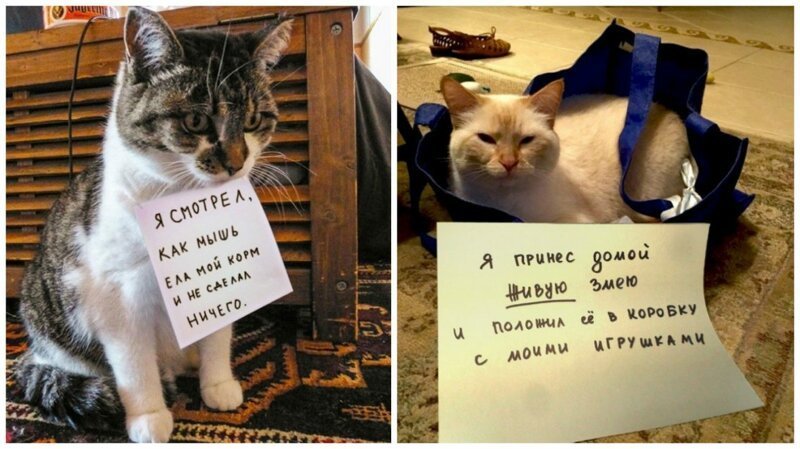 Я СМОТРЕЛ,
КАК МЫШЬ
ЕЛА МОЙ КОРМ
И НЕ СДЕЛАЛ
НИЧЕГО.
Я ПРИНЕС ДОМОЙ
ЖИВУЮ ЗМЕЮ
И ПОЛОЖИЛ ЕЁ В КОРОБКУ
С МОИМИ ИГРУШКАМИ